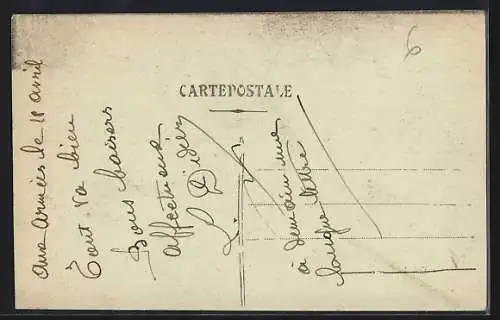 CARTE POSTALE
6
aux armées le 18 avril
Tout va bien
bons baisers
affectueux
à demain une
longue lettre